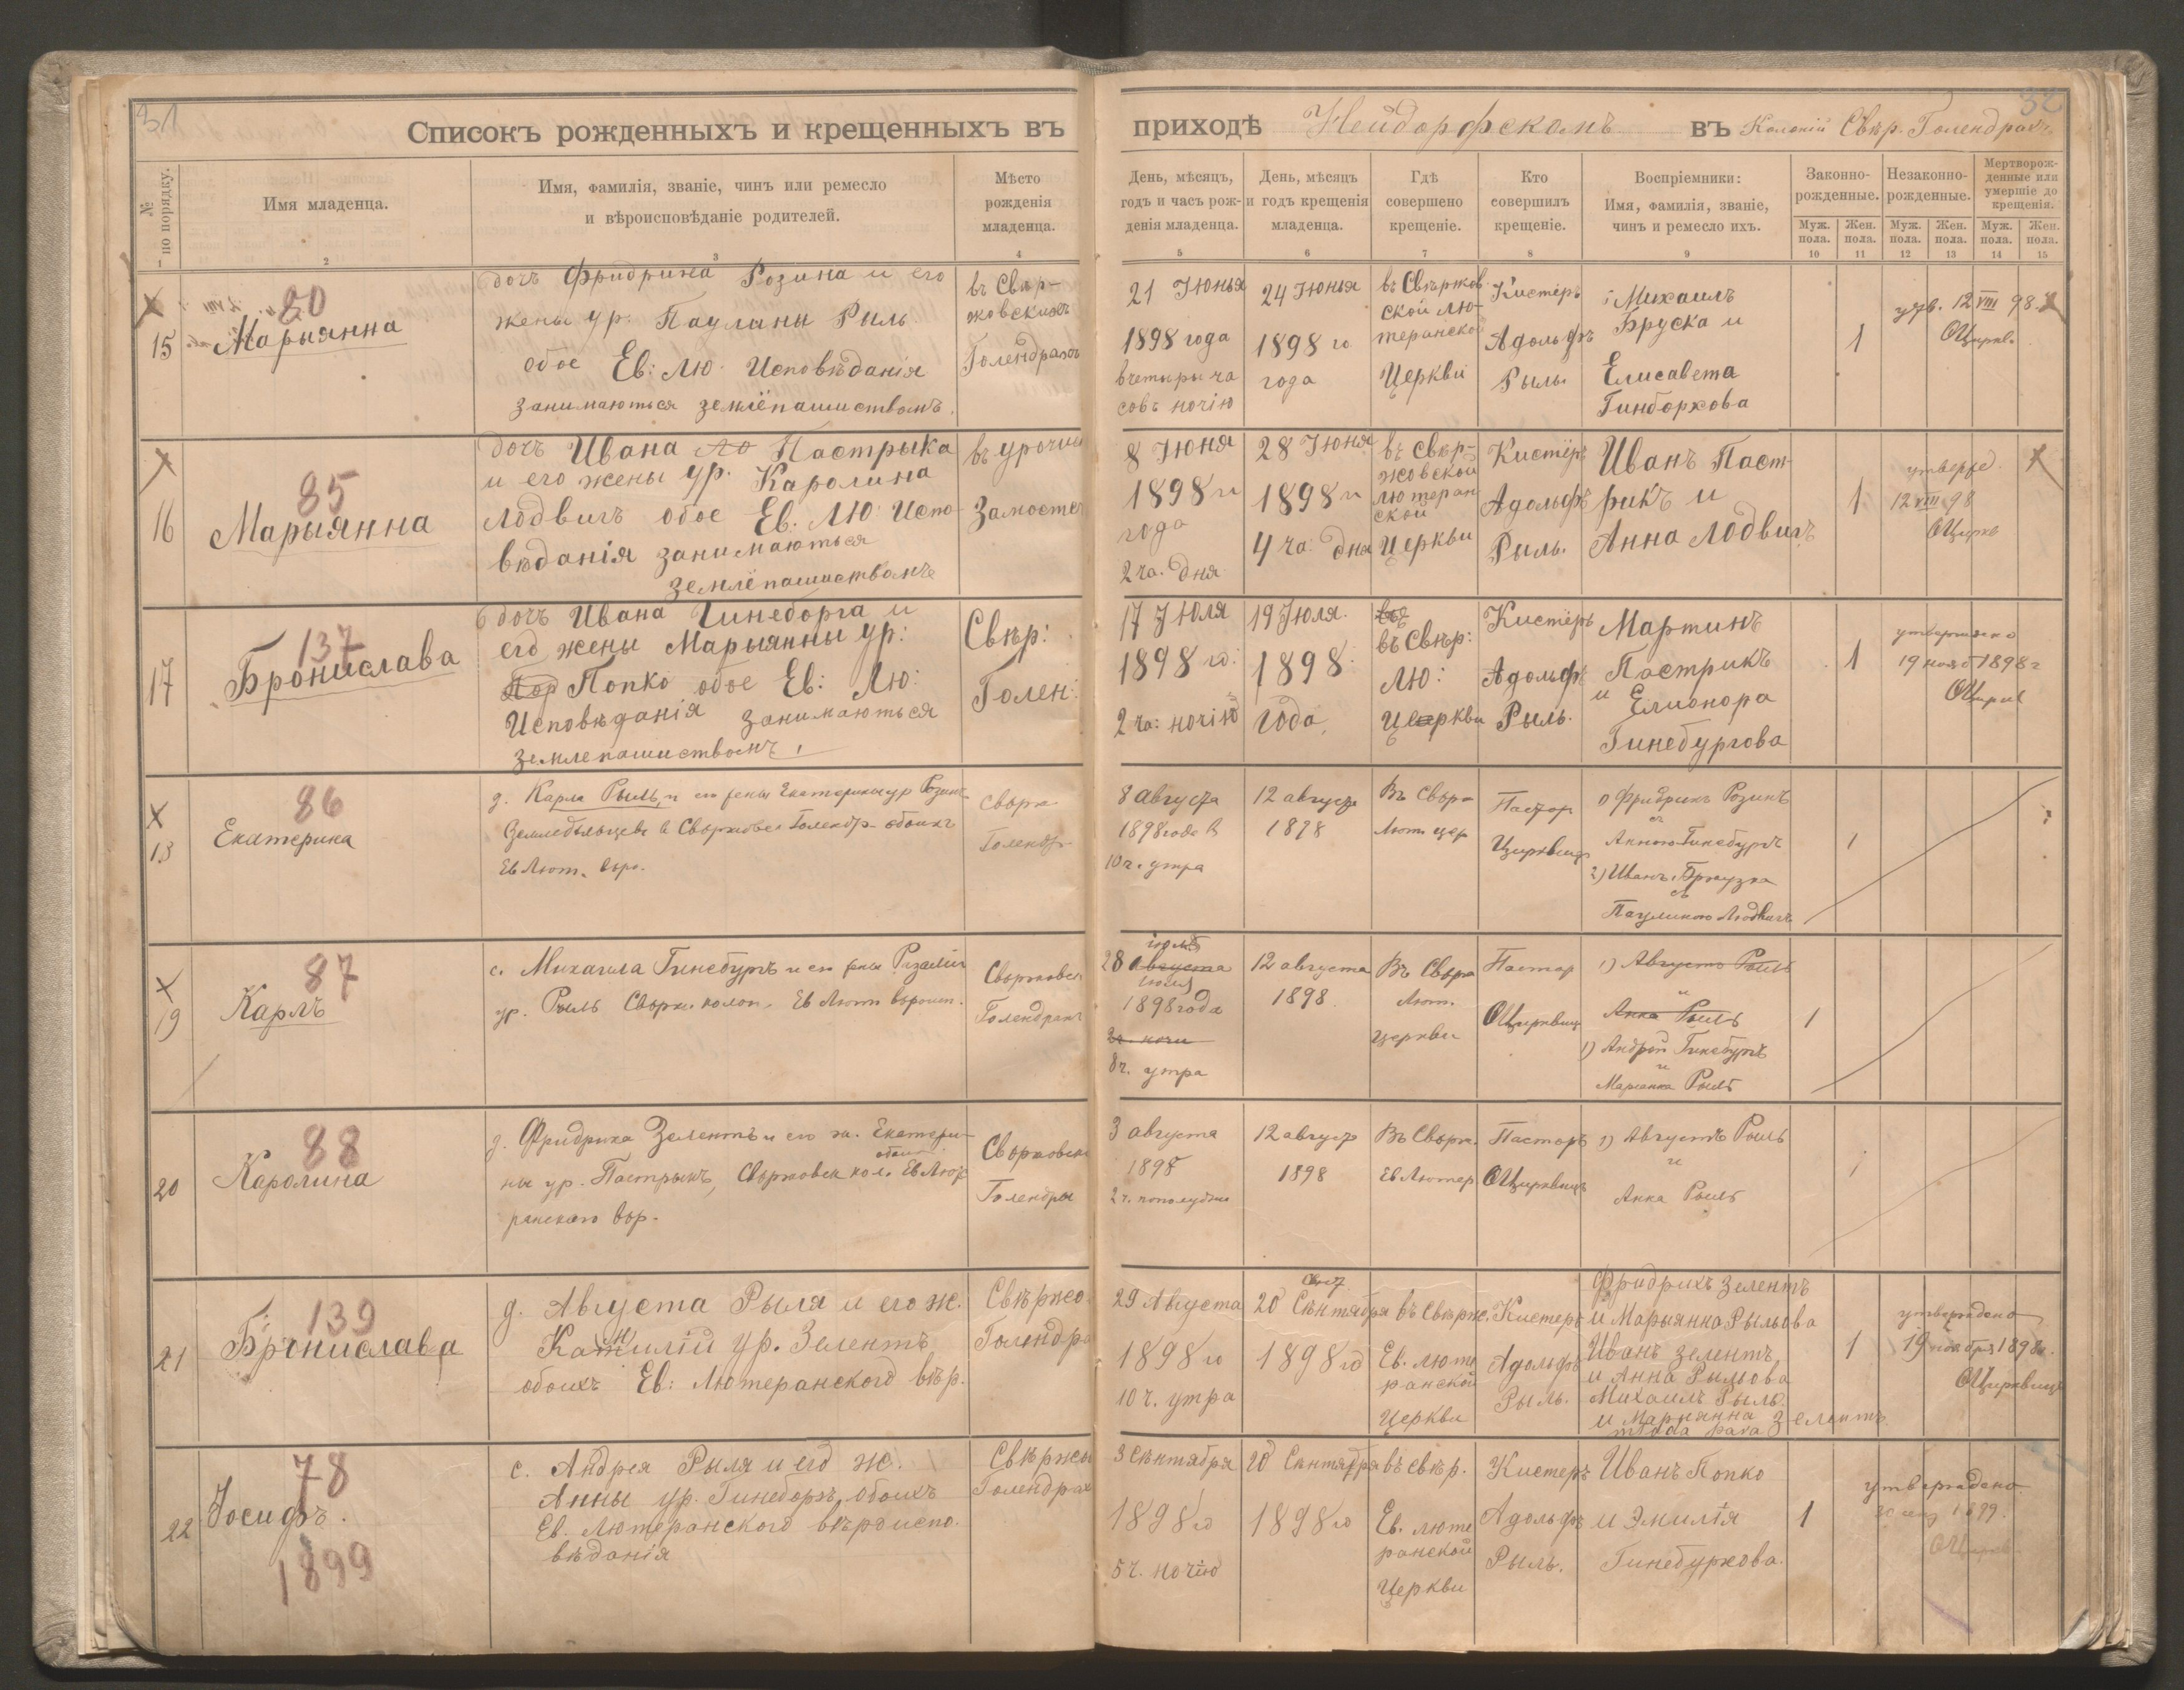 31
32
Списокъ рожденныхъ и крещенныхъ въ приходѣ Нейдорфскомъ въ Колоній Свѣр. Голендрахъ
№ по порядку.
Имя младенца.
Имя, фамилія, званіе, чинъ или ремесло
и вѣроисповѣданіе родителей.
Мѣсто
рожденія
младенца.
День, мѣсяцъ,
годъ и часъ рож-
денія младенца.
День, мѣсяцъ
и годъ крещенія
младенца.
Гдѣ
совершено
крещеніе.
Кто
совершилъ
крещеніе.
Воспріемники:
Имя, фамилія, званіе,
чинъ и ремесло ихъ.
Законно-
рожденные.
Незаконно-
рожденные.
Мертворож-
денные или
умершіе до
крещенія.
Муж.
пола.
Жен.
пола.
Муж.
пола.
Жен.
пола.
Муж.
пола.
Жен.
пола.
2 3 4 5 6 7 8 9 10 11 12 13 14 15
15
80
Марыянна
дочъ Фридриха Розина и его
жены ур. Паулины Рыль
обое Ев: Лю. Исповѣданія
занимаються землёпашиствомъ.
въ Свѣр-
жовскихъ
Голендрахъ
21 Июнья
1898 года
вчетыры ча
совъ ночію
24 Июнья
1898 го
года
въ Свѣржов
ской лю-
теранской
Церкви
Кистеръ
Адольфъ
Рыль.
Михаилъ
Бруска и
Елисавета
Гинборхова
1
утв. 12 VIII 98.
16
85
Марыянна
дочъ Ивана Пастрыка
и его жены ур. Каролина
Лодвигъ обое Ев. Лю Испо-
вѣданія занимаються
землёпашиствомъ
въ урочищ
Замосте
8 Июня
1898 го
года
2 ча. дня
28 Июня
1898 го
4 ча. дня
въ Свѣр-
жовской
лютеран
ской
Церкви
Кистёръ
Адольфъ
Рыль.
Иванъ Паст-
рикъ и
Анна Лодвигъ
1
утвержд.
12 VIII 98
17
137
Бронислава
дочъ Ивана Гинеборга и
его жены Марыянны ур:
Попко обое Ев: Лю:
Исповѣданія занимаються
землепашиствомъ.
Свѣр:
Голен:
17 Июля
1898 го:
2 ча: ночію
19 Июля.
1898.
года,
въ Свѣр:
Лю:
Церкви
Кистеръ
Адольфъ
Рыль.
Мартинъ
Пастрикъ
и Елионора
Гинебургова
1
утверждено
19 нояб 1898 г
18
86
Екатерина
д. Карла Рыль, и его жены Екатерины ур Розинъ
Земледѣльцевъ в Свѣржовск Голендр. обоихъ
Ев Лют. вѣро.
Свѣрж
Голендр
8 августа
1898 года в
10 ч. утра
12 август
1898
Въ Свѣрж
Лют. цер
Пастор
1) Фридрихъ Розинъ
съ
Анною Гинебургъ
2) Иванъ Бржузка
съ
Паулиною Людвигъ
1
19
87
Карлъ
с. Михаила Гинебургъ и его жены Розаліи
ур. Рыль Свѣрж. колон. Ев Лют вѣроисп.
Свѣржовск
Голендрахъ
28 августа
іюля
1898 года
2 ч. ночи
8 ч. утра
12 августа
1898.
Въ Свѣрж
Лют.
церкви
Пастор
1) Августъ Рыль
и
Анна Рыль
1) Андрей Гинебургъ
и
Маріанна Рыль
1
20
88
Каролина
д. Фридриха Зелентъ и его ж. Екатери-
ны ур. Пастрыкъ, Свѣржовск кол. обоихъ Ев Люте
ранскаго вѣр.
Свѣржовск
Голендры
3 августа
1898
2 ч. пополудни
12 август
1898
Въ Свѣрж.
Ев Лютер
Пасторъ
1) Августъ Рыль
и
Анна Рыль
1
21
139
Бронислава
д. Августа Рыля и его ж.
Камилій ур. Зелентъ
обоихъ Ев: Лютеранского вѣр.
Свѣржо
Голендра
29 Августа
1898 го
10 ч. утра
20 Сѣнтября
1898 го
въ Свѣрж.
Ев. люте
ранской
Церкви
Кистеръ
Адольфъ
Рыль.
Фридрихъ Зелентъ
и Марыянна Рыльова
Иванъ Зелентъ
и Анна Рыльова
Михаилъ Рыль
и Марыянна Зелентъ
1
утверждено
19 ноября 1898 г.
22
78
Іосифъ.
1899
с. Андрея Рыля и его ж.
Анны ур. Гинеборгъ, обоихъ
Ев. Лютеранского вѣроиспо.
вѣданія
Свѣржы
Голендрах
3 сѣнтября
1898 го
5 ч. ночію
20 Сѣнтября
1898 го
въ свѣр.
Ев. люте
ранской
Церкви
Кистеръ
Адольфъ
Рыль.
Иванъ Попко
и Эмилія
Гинебуркова.
1
утверждено
1899.